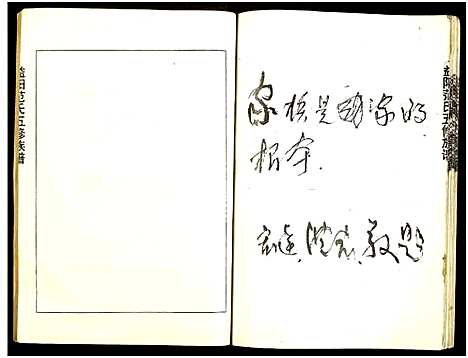 家族是国家的
根本.
敬题
益阳范氏五修族谱
益阳范氏五修族谱